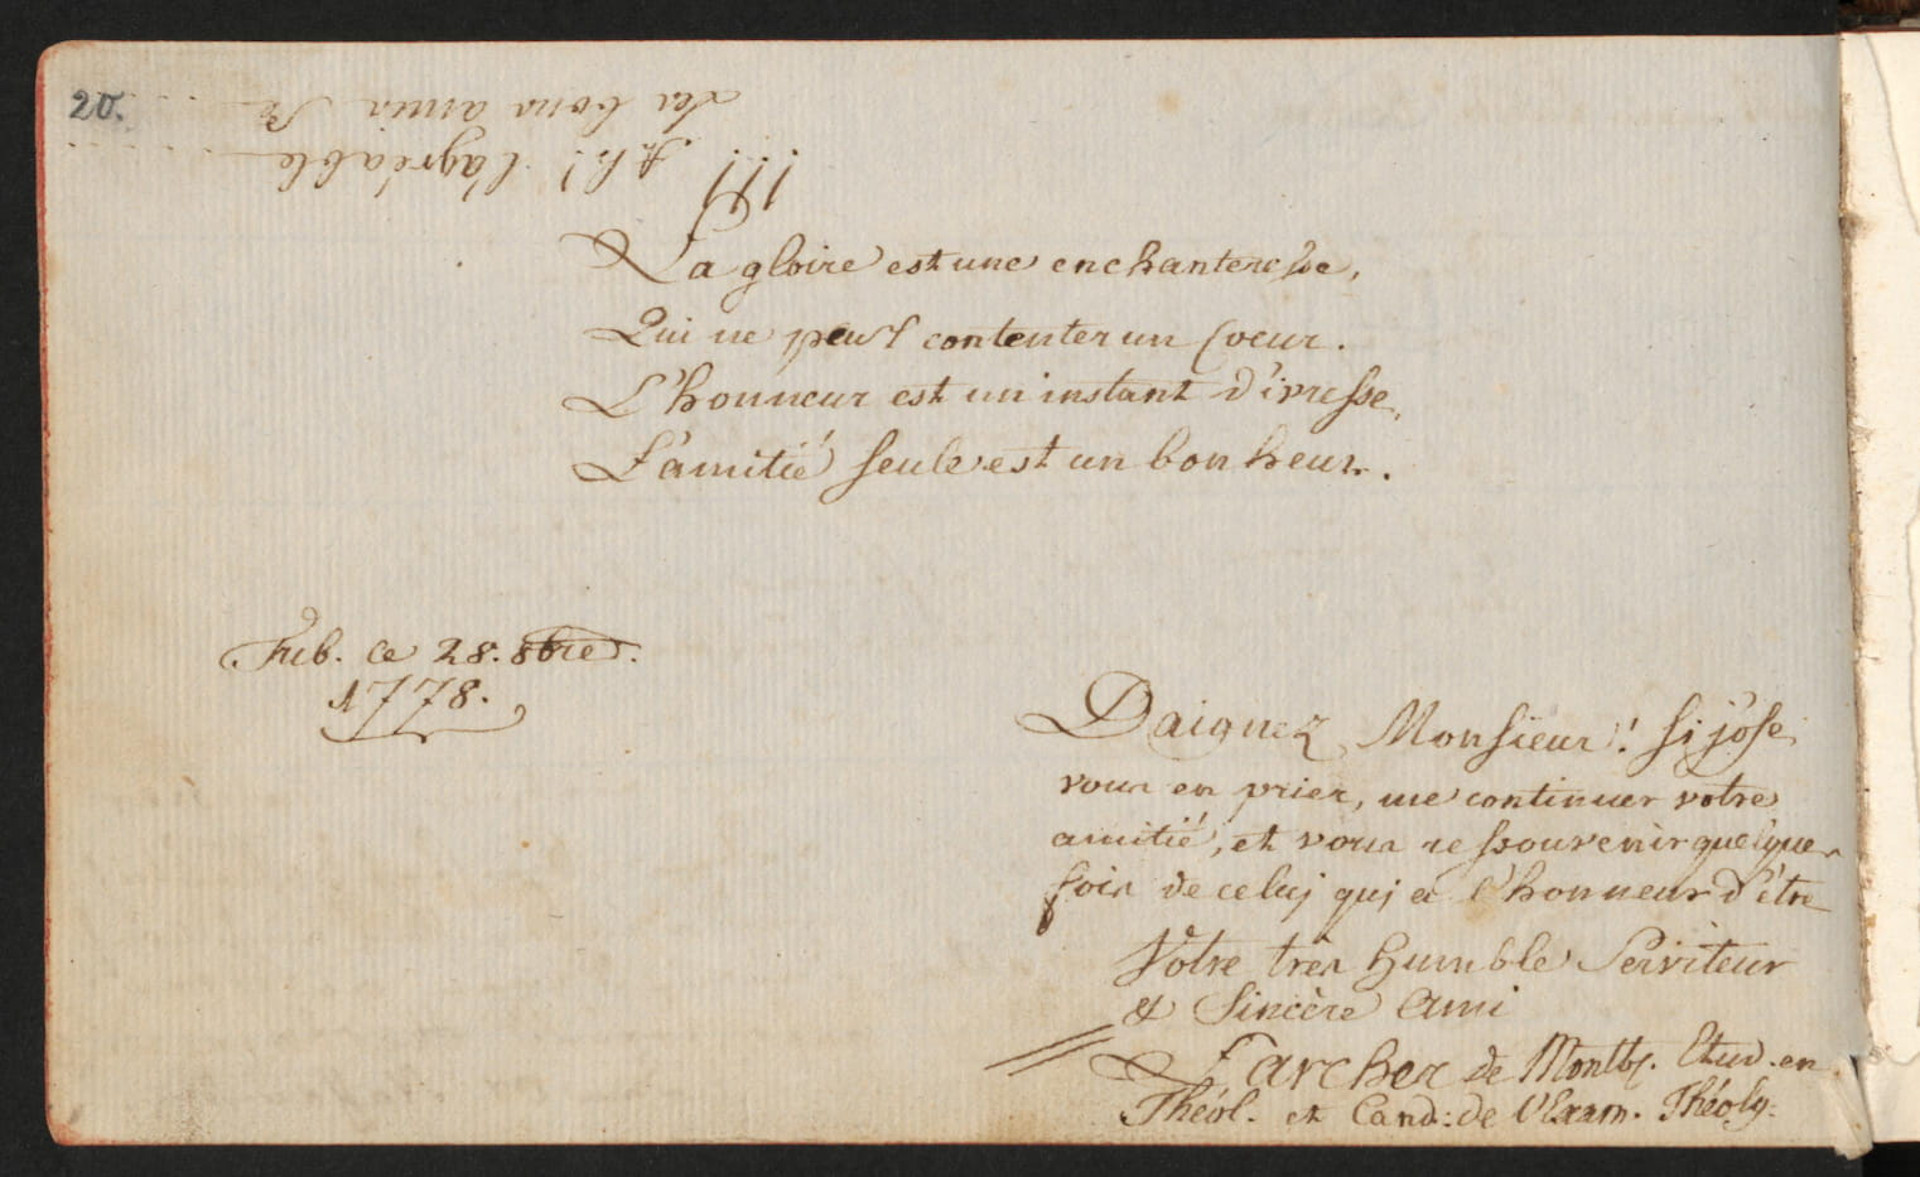 20.
Ah! l'agréable
des bons amis &
La gloire est une enchanteresse,
Qui ne peut contenter un Coeur.
L'honneur est un instant d'ivresse,
L'amitié seule est un bonheur.
Tub. ce 28. 8bre.
1778.
Daignez Monsieur! si j'ose
vous en prier, me continuer votre
amitié, et vous ressouvenir quelques
fois de celuj quj a l'honneur d'être
Votre très humble Serviteur
& Sincère Ami
Larcher de Montb. Etud. en
Théol. et Cand: de l'Exam. Théolg.